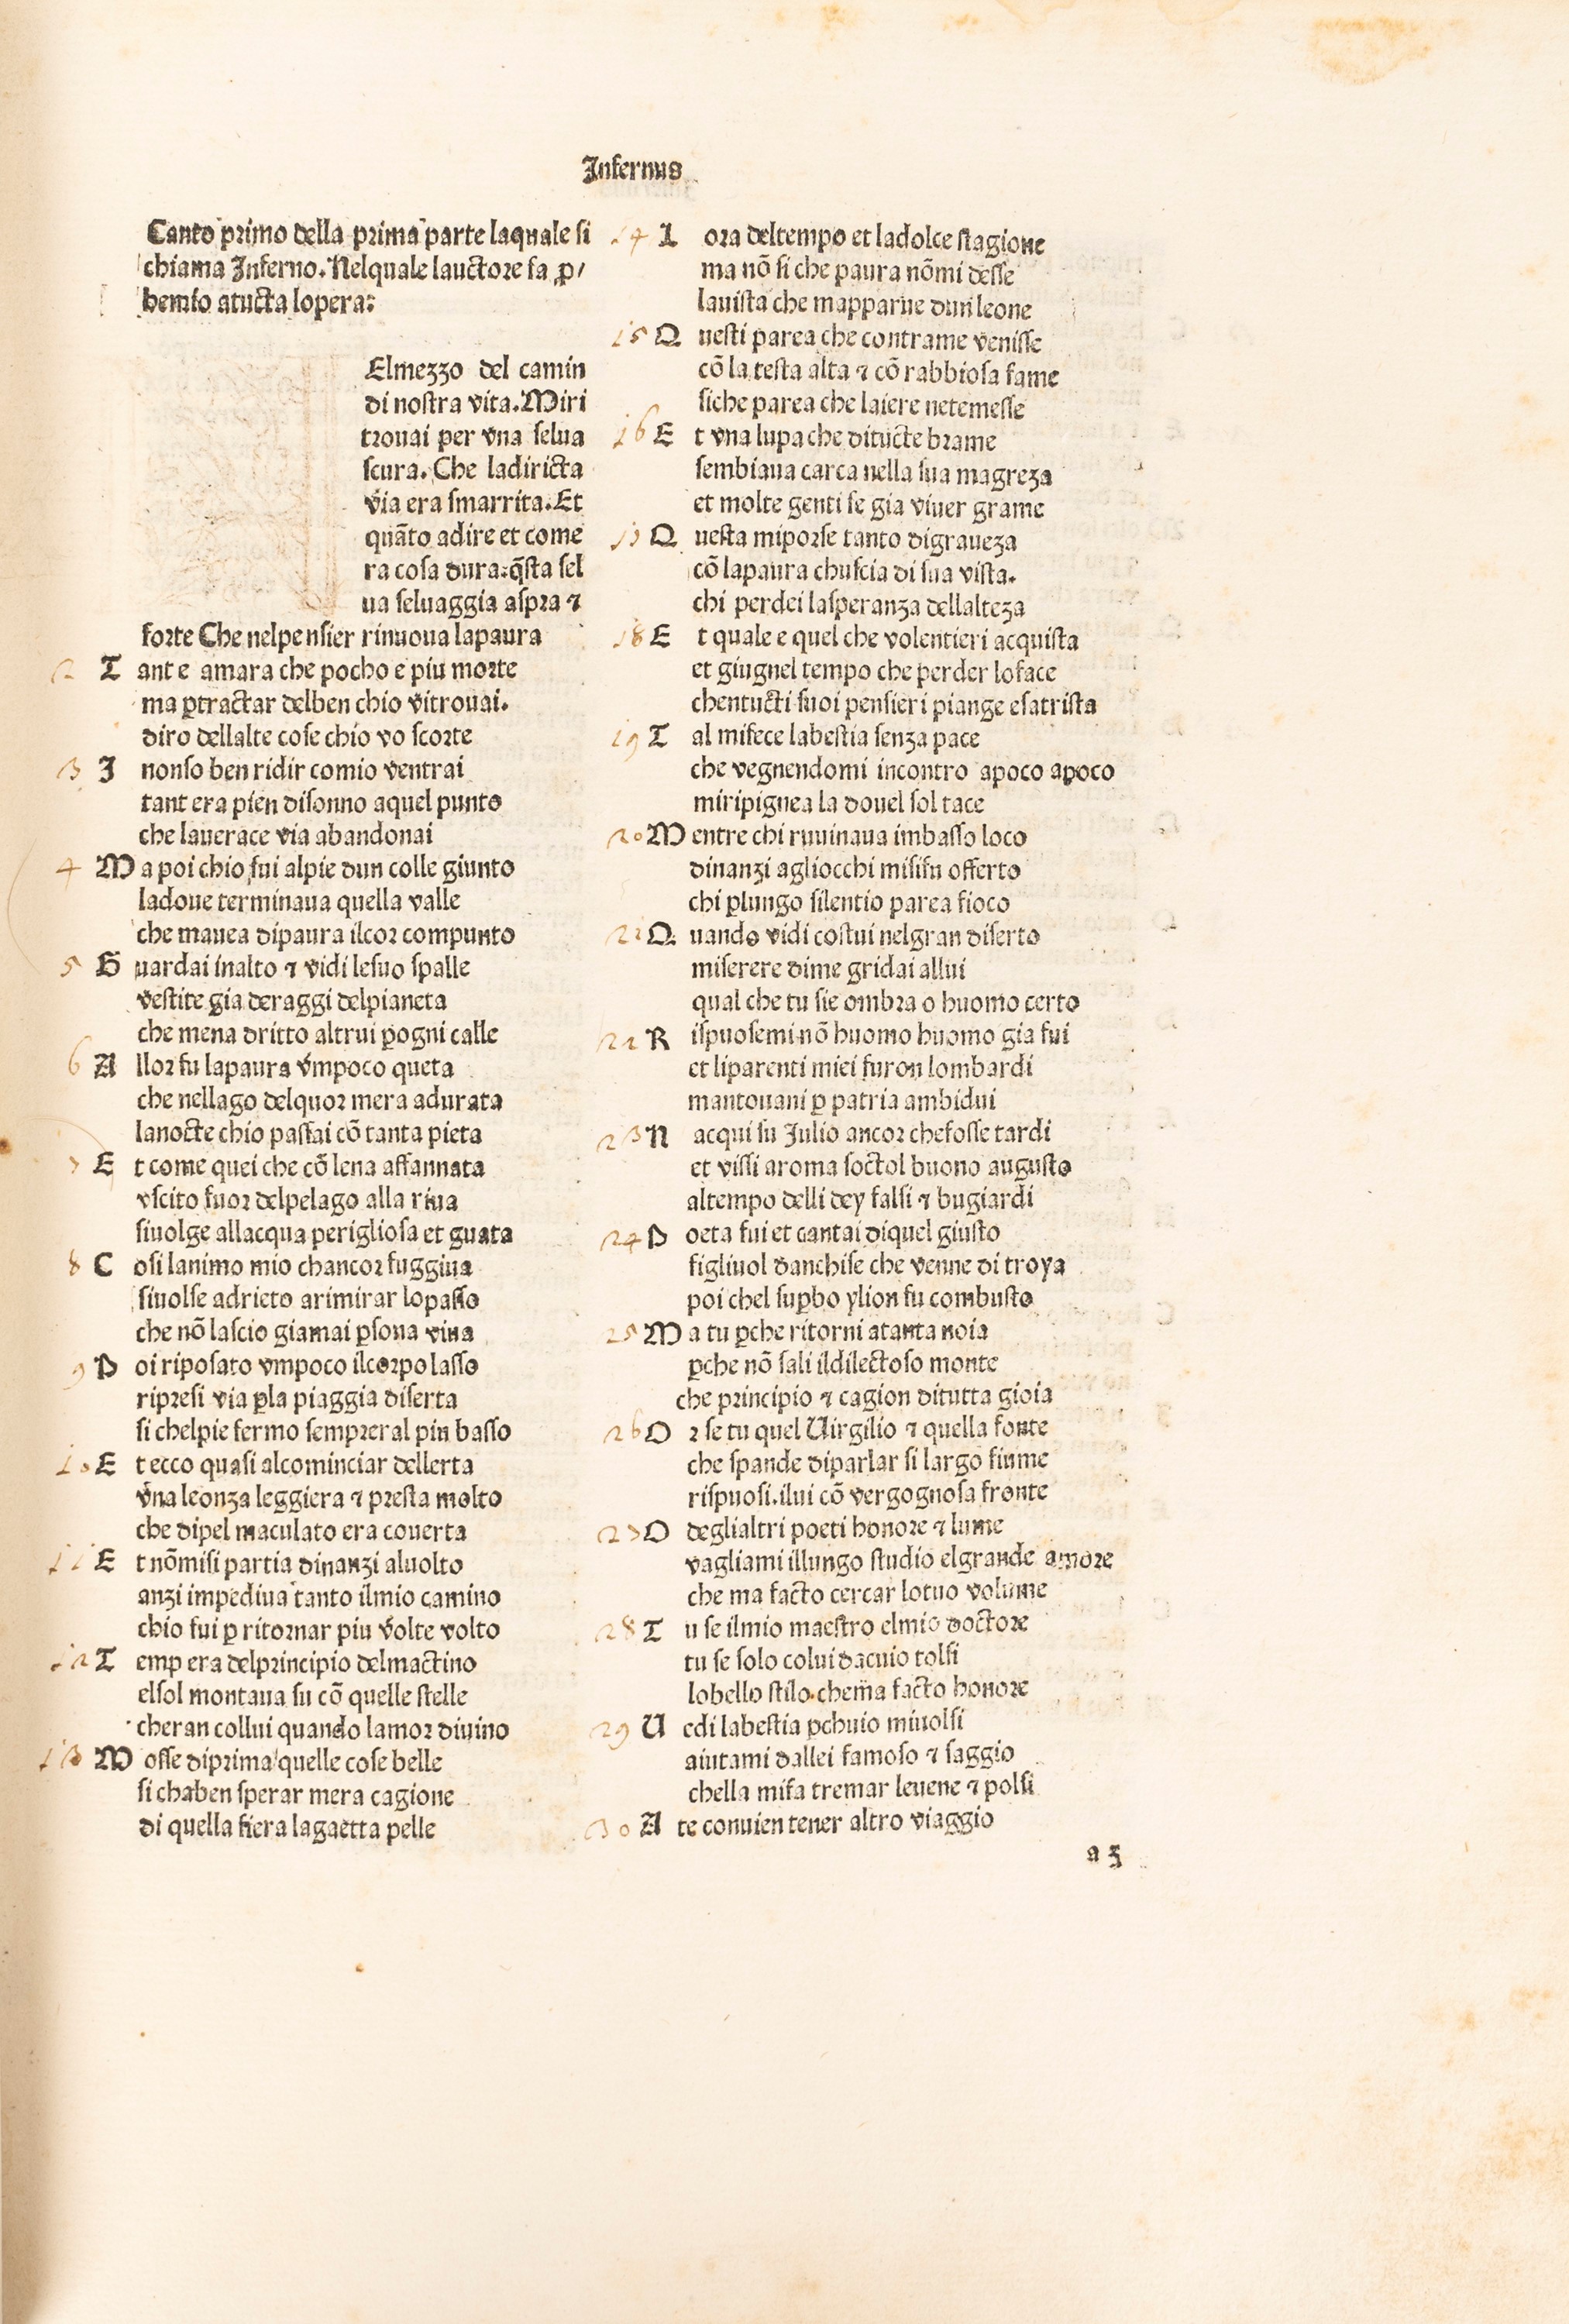 Infernus
Canto primo della prima parte laquale si
chiama Inferno. Nelquale lauctore fa ꝓ/
hemio atucta lopera:
Elmezzo del camin
di nostra vita. Miri
trouai per vna selua
scura. Che ladiricta
via era smarrita. Et
quãto adire et come
ra cosa dura: q̃sta sel
ua seluaggia aspra ⁊
forte Che nelpensier rinuoua lapaura
2 T ant e amara che pocho e piu morte
ma ꝑtractar delben chio vitrouai.
diro dellalte cose chio vo scorte
3 I nonso ben ridir comio ventrai
tant era pien disonno aquel punto
che lauerace via abandonai
4 M a poi chio fui alpie dun colle giunto
ladoue terminaua quella valle
che mauea dipaura ilcor compunto
5 G uardai inalto ⁊ vidi lesuo spalle
vestite gia deraggi delpianeta
che mena dritto altrui ꝑogni calle
6 A llor fu lapaura vmpoco queta
che nellago delquor mera adurata
lanocte chio passai cõ tanta pieta
7 E t come quei che cõ lena affannata
vscito fuor delpelago alla riua
siuolge allacqua perigliosa et guata
8 C osi lanimo mio chancor fuggiua
siuolse adrieto arimirar lopasso
che nõ lascio giamai ꝑsona viua
9 P oi riposato vmpoco ilcorpo lasso
ripresi via ꝑla piaggia diserta
si chelpie fermo sempreral piu basso
10 E t ecco quasi alcominciar dellerta
vna leonza leggiera ⁊ presta molto
che dipel maculato era couerta
11 E t nõmisi partia dinanzi aluolto
anzi impediua tanto ilmio camino
chio fui ꝑ ritornar piu volte volto
12 T emp era delprincipio delmactino
elsol montaua su cõ quelle stelle
cheran collui quando lamor diuino
13 M osse diprima quelle cose belle
si chaben sperar mera cagione
di quella fiera lagaetta pelle
14 L ora deltempo et ladolce stagione
ma nõ si che paura nõmi desse
lauista che mapparue dun leone
15 Q uesti parea che contrame venisse
cõ la testa alta ⁊ cõ rabbiosa fame
siche parea che laiere netemesse
16 E t vna lupa che ditucte brame
sembiaua carca nella sua magreza
et molte genti fe gia viuer grame
17 Q uesta miporse tanto digraueza
cõ lapaura chuscia di sua vista.
chi perdei lasperanza dellalteza
18 E t quale e quel che volentieri acquista
et giugnel tempo che perder loface
chentucti suoi pensieri piange esatrista
19 T al mifece labestia senza pace
che vegnendomi incontro apoco apoco
miripignea la douel sol tace
20 M entre chi ruuinaua imbasso loco
dinanzi agliocchi misifu offerto
chi ꝑlungo silentio parea fioco
21 Q uando vidi costui nelgran diserto
miserere dime gridai allui
qual che tu sie ombra o huomo certo
22 R ispuosemi nõ huomo huomo gia fui
et liparenti miei furon lombardi
mantouani ꝑ patria ambidui
23 N acqui su Julio ancor chefosse tardi
et vissi aroma soctol buono augusto
altempo delli dey falsi ⁊ bugiardi
24 P oeta fui et cantai diquel giusto
figliuol danchise che venne di troya
poi chel suꝑbo ylion fu combusto
25 M a tu ꝑche ritorni atanta noia
ꝑche nõ sali ildilectoso monte
che principio ⁊ cagion ditutta gioia
26 O r se tu quel Uirgilio ⁊ quella fonte
che spande diparlar si largo fiume
rispuosi.ilui cõ vergognosa fronte
27 O deglialtri poeti honore ⁊ lume
vagliami illungo studio elgrande amore
che ma facto cercar lotuo volume
28 T u se ilmio maestro elmio doctore
tu se solo colui dacuio tolsi
lobello stilo chema facto honore
29 U edi labestia ꝑchuio miuolsi
aiutami dallei famoso ⁊ saggio
chella mifa tremar leuene ⁊ polsi
30 A te conuien tener altro viaggio
a 3